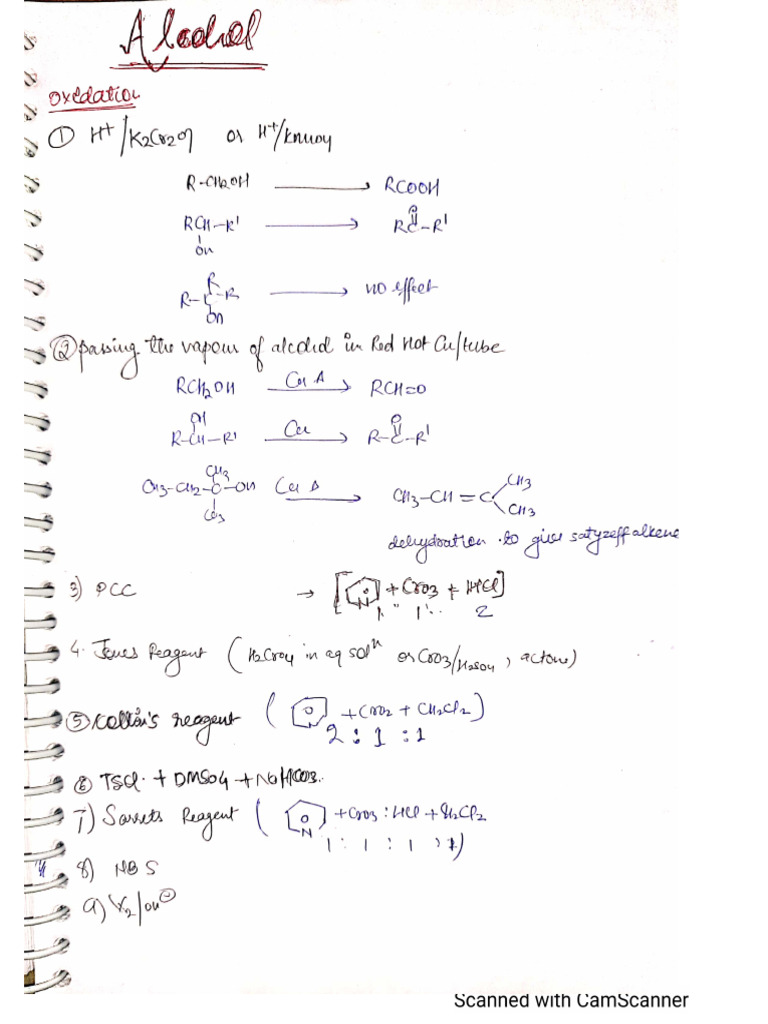 Alcohol
Oxedation
① H+/K2Cr2O7 or H+/KMnO4
R-CH2OH → RCOOH
RCH-R' → RC-R'
OH O
R
R-C-R → NO effect
OH
② passing the vapour of alcohol in Red Hot Cu/tube
RCH2OH Cu Δ → RCH=O
OH O
R-CH-R' Cu → R-C-R'
CH3
CH3-CH2-C-OH Cu Δ → CH3-CH=C CH3
CH3 CH3
dehydration to give satyzeff alkene
3) PCC → [ N + CrO3 + HCl]
1 : 1 : 2
4. Jones Reagent (H2CrO4 in aq solⁿ or CrO3/H2SO4, actone)
⑤ Collin's reagent ( + CrO2 + CH2Cl2)
2 : 1 : 1
⑥ TSCl + DMSO4 + NaHCO3.
7) Sarrets Reagent ( N + CrO3 : HCl + CH2Cl2
1 : 1 : 1
8) NBS
9) X2/OH⊖
Scanned with CamScanner